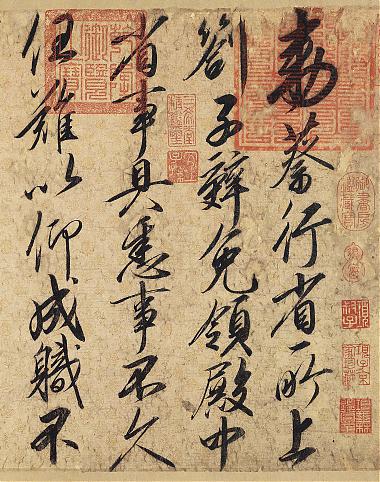 勅蔡行省所上
劄子辭免領殿中
省事具悉事不久
任難以仰成職不